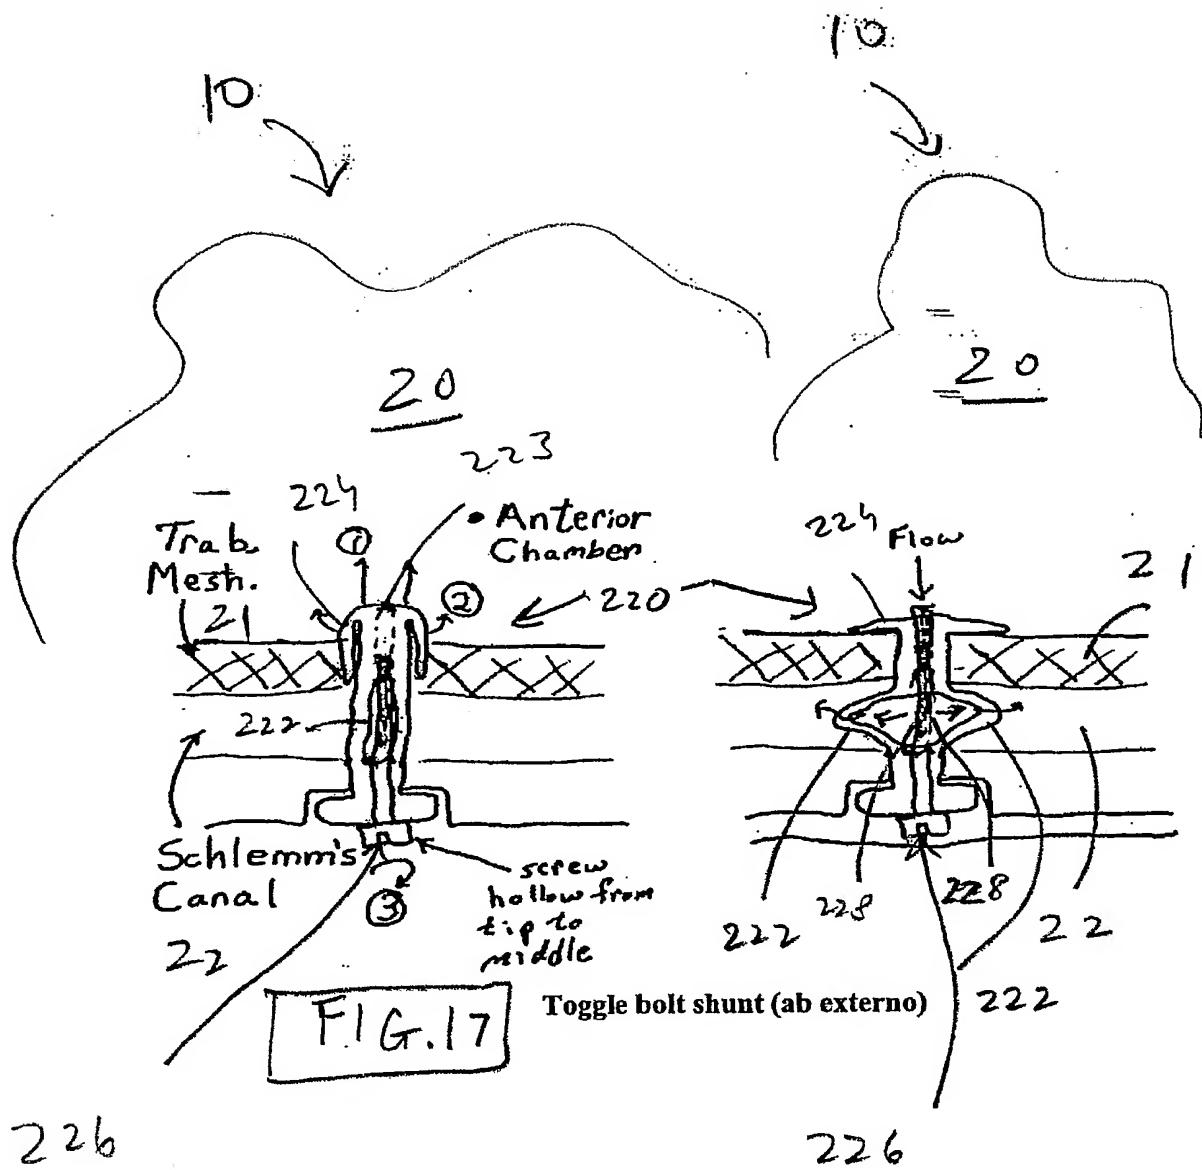 10
10
20
20
223
224
① 
• Anterior
Chamber
Trab.
Mesh.
②
21
220
224
Flow
21
222
Schlemm's
Canal
③
screw
hollow from
tip to
middle
22
222
228
228
22
222
FIG.17
Toggle bolt shunt (ab externo)
226
226